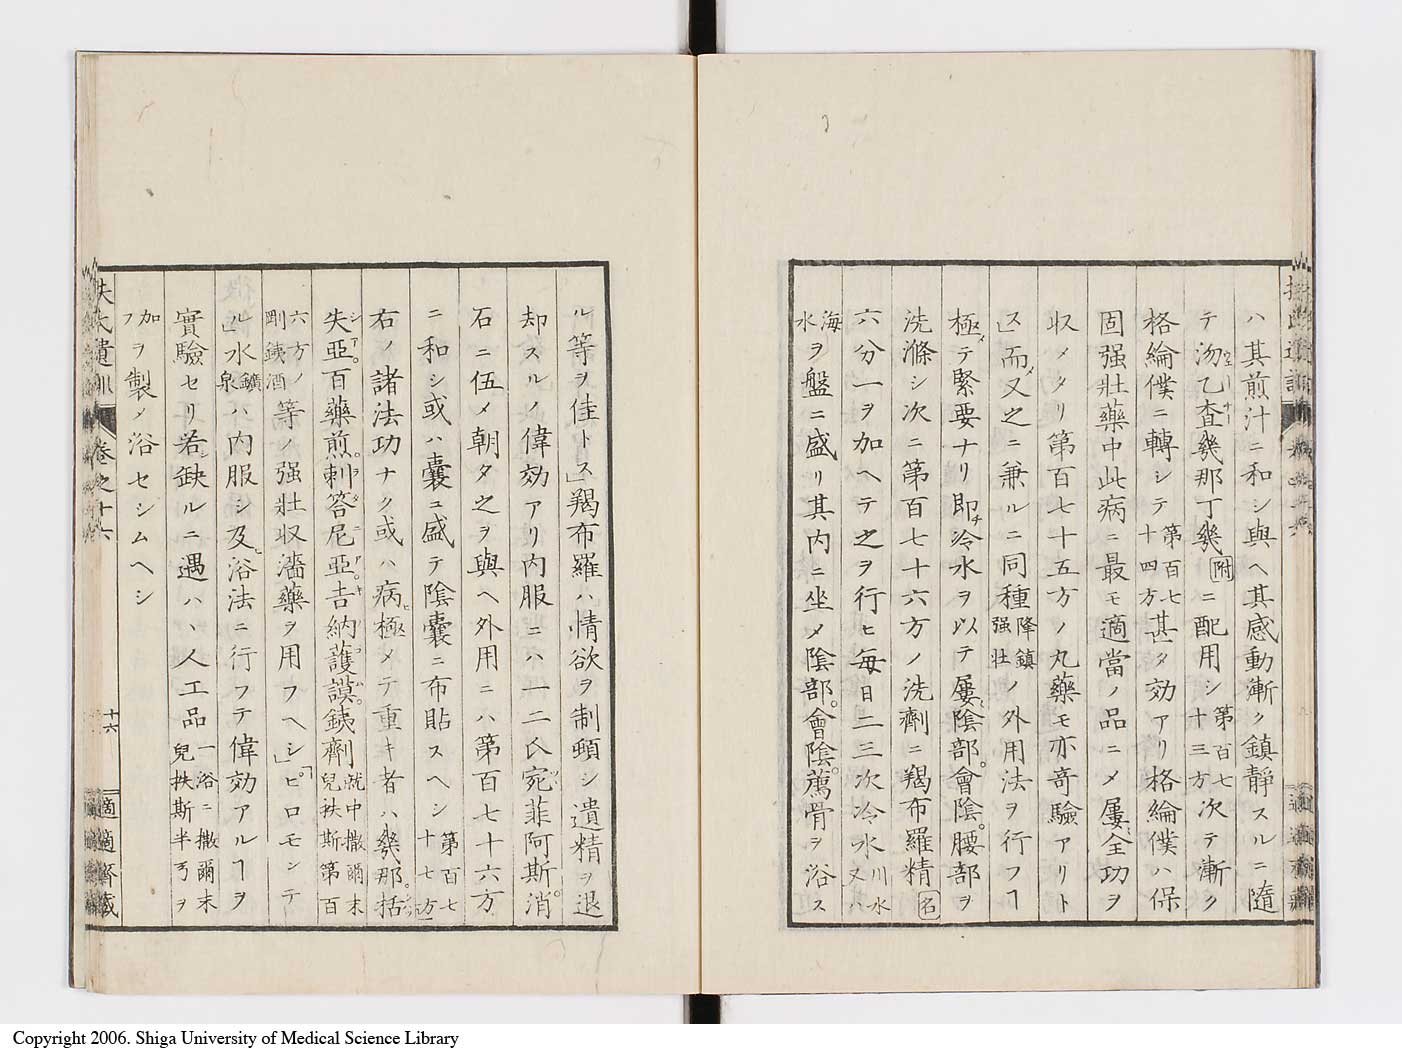 ハ其煎汁ニ和シ與ヘ其感動漸ク鎮靜スルニ隨
テ汤乙査幾那丁幾附ニ配用シ第百七十三方次テ漸ク
格綸僕ニ轉シテ第百七十四方甚タ効アリ格綸僕ハ保
固强壯藥中此病ニ最モ適當ノ品ニメ屢全功ヲ
収メタリ第百七十五方ノ丸藥モ亦竒驗アリト
ス」而又之ニ兼ルニ同種降鎮强壯ノ外用法ヲ行フヿ
極テ緊要ナリ即冷水ヲ以テ屢陰部。會陰。腰部ヲ
洗滌シ次ニ第百七十六方ノ洗劑ニ羯布羅精名
六分一ヲ加ヘテ之ヲ行ヒ每日二三次冷水川水又ハ
海水ヲ盤ニ盛リ其内ニ坐メ陰部。會陰。薦骨ヲ浴ス
ル等ヲ佳トス」羯布羅ハ情欲ヲ制頓シ遺精ヲ退
却スルノ偉効アリ内服ニハ一二氏宛菲阿斯。消
石ニ伍メ朝夕之ヲ與ヘ外用ニハ第百七十六方
ニ和シ或ハ囊ニ盛テ陰囊ニ布貼スヘシ第百七十七方
右ノ諸法功ナク或ハ病極メテ重キ者ハ幾那。括
失亞。百藥煎。刺答尼亞。吉納護謨。鐵劑就中撒爾末兒秩斯第百
六方ノ剛鐵酒等ノ强壯収濇藥ヲ用フヘシ」「ピロモンテ
ル」水鑛泉ハ内服シ及浴法ニ行フテ偉効アルヿヲ
實驗セリ若缺ルニ遇ハヽ人工品一浴ニ撒爾末兒秩斯半丐ヲ
加フヲ製メ浴セシムヘシ
扶氏遺訓
卷之十六
十六
適適齋藏
Copyright 2006. Shiga University of Medical Science Library